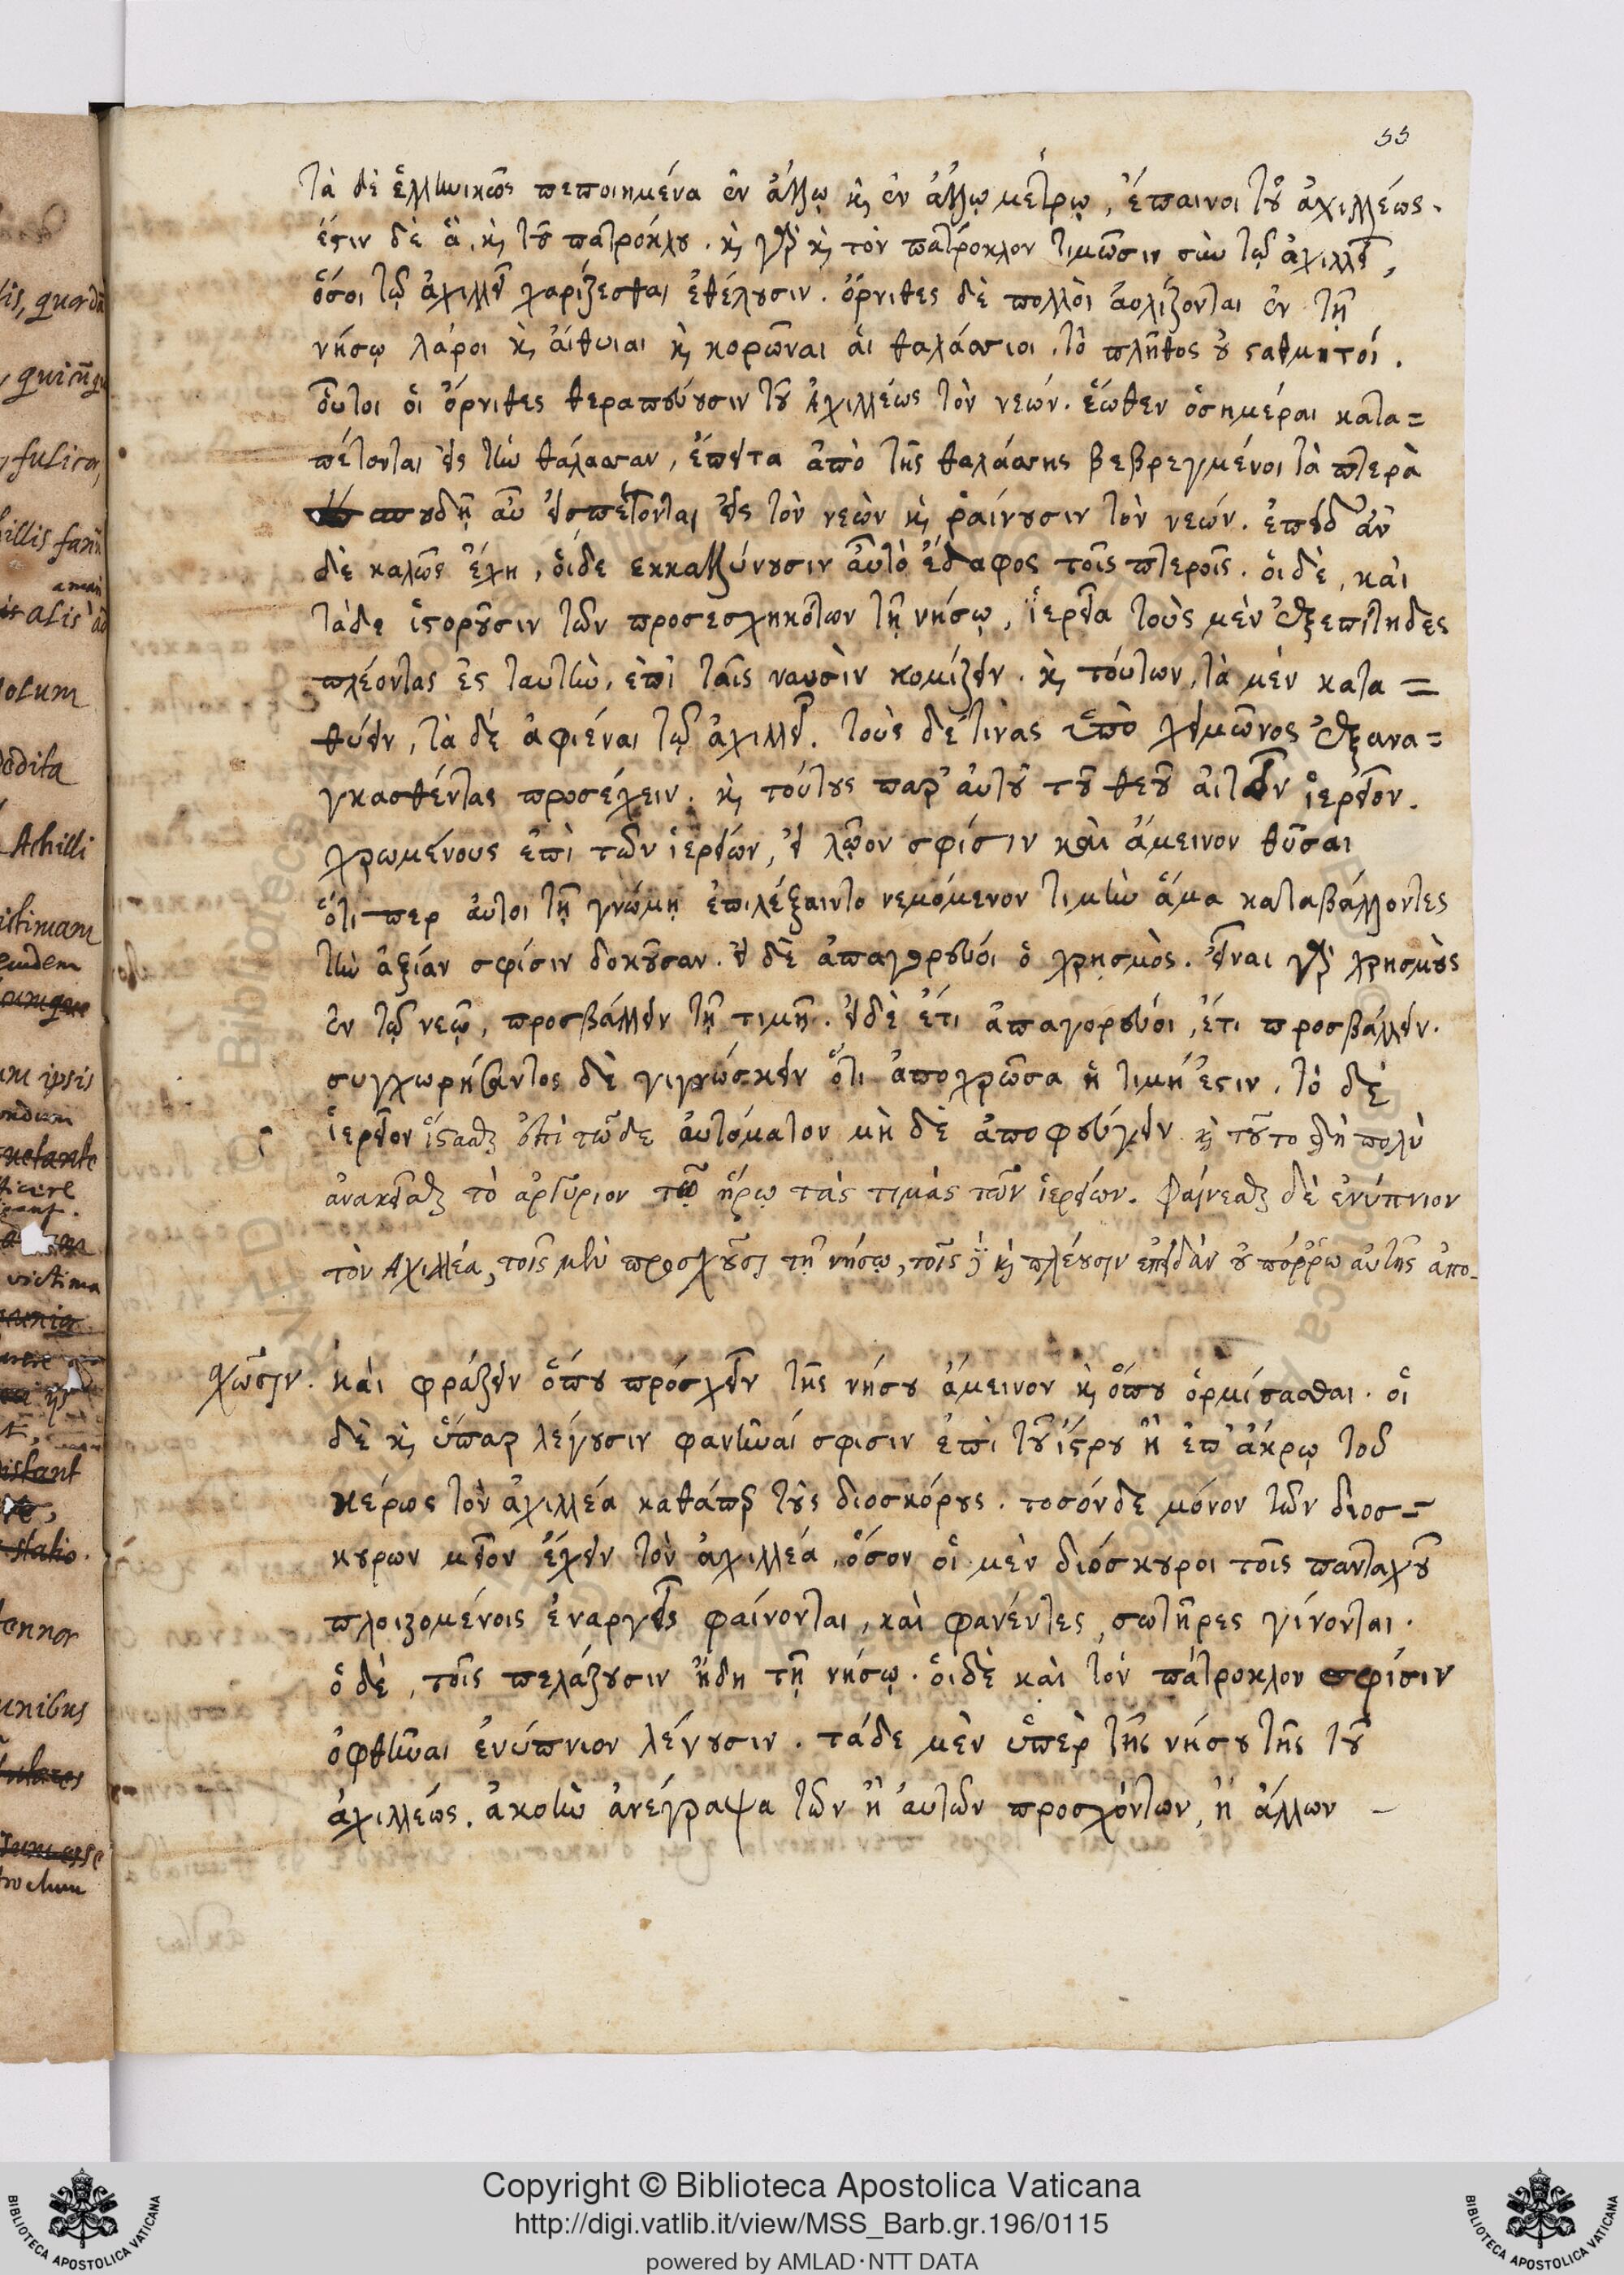 55
τὰ δὲ ἑλληνικῶς πεποιημένα ἐν ἄλλῳ κ̀ ἐν ἄλλῳ μέτρῳ, ἔπαινοι τοῦ ἀχιλλέως.
ἔστιν δὲ ἃ, κ̀ τοῦ πατρόκλου. κ̀ γὰρ κ̀ τὸν πάτροκλον τιμῶσιν σὺν τῷ ἀχιλλεῖ,
ὅσοι τῷ ἀχιλλεῖ χαρίζεσθαι ἐθέλουσιν. ὄρνιθες δὲ πολλοὶ ἀολίζονται ἐν τῇ
νήσῳ λάροι κ̀ αἴθυιαι κ̀ κορῶναι αἱ θαλάσσιοι. τὸ πλῆθος οὐ σταθμητοί.
οὗτοι οἱ ὄρνιθες θεραπεύουσιν τοῦ Ἀχιλλέως τὸν νεών. ἕωθεν ὁσημέραι κατα=
πέτονται εἰς τὴν θάλασσαν, ἔπειτα ἀπὸ τῆς θαλάσσης βεβρεγμένοι τὰ πτερὰ
σπουδῇ αὖ εἰσπέτονται εἰς τὸν νεὼν κ̀ ῥαίνουσιν τὸν νεών. ἐπειδ' ἀν
δὲ καλῶς ἔχη, οἵδε εκκαλλύνουσιν αὖ τὸ ἔδαφος τοῖς πτεροῖς. οἱ δὲ, καὶ
τάδε ἱστοροῦσιν τῶν προσεσχηκότων τῇ νήσῳ, ἱερεῖα τοὺς μὲν ἐξεπίτηδες
πλέοντας ἐς ταυτὴν, ἐπὶ ταῖς ναυσὶν κομίζειν. κ̀ τούτων, τὰ μὲν κατα=
θύειν, τὰ δέ ἀφιέναι τῷ ἀχιλλεῖ. τοὺς δέ τινας ὑπὸ χειμῶνος ἐξανα=
γκασθέντας προσέχειν. κ̀ τούτους παρ' αὐτοῦ τοῦ θεοῦ αἰτεῖν ἱερεῖον.
χρωμένους ἐπὶ τῶν ἱερείων, εἰ λῷον σφίσιν καὶ ἄμεινον θῦσαι
ὅτι περ αὐτοι τῇ γνώμῃ ἐπιλέξαιντο νεμόμενον τιμὴν ἅμα καταβάλλοντες
τὴν ἀξίαν σφίσιν δοκοῦσαν. εἰ δὲ ἀπαγορευοι ὁ χρησμὸς. εἶναι γὰρ χρησμοὺς
ἐν τῷ νεῷ, προσβάλλειν τῇ τιμῇ. εἰ δὲ ἔτι ἀπαγορεύοι, ἔτι προσβάλλειν.
συγχωρήσαντος δὲ γιγνώσκειν ὅτι ἀποχρῶσα ἡ τιμή ἐστιν. τὸ δὲ
ἱερεῖον ἵστασθαι ἐπὶ τῷδε αὐτόματον μὴ δὲ ἀποφεύγειν κ̀ τοῦτο δὴ πολὺ
ἀνακεῖσθαι τὸ ἀργύριον τῷ ἥρῳ τὰς τιμὰς τῶν ἱερείων. φαίνεσθαι δὲ ἐνύπνιον
τὸν Ἀχιλλέα, τοῖς μὲν προσχοῦσι τῇ νήσῳ, τοῖς δὲ κ̀ πλέουσιν ἐπειδὰν οὐ πόρρω αὐτῆς ἀπο-
χῶσιν. καὶ φράζειν ὅπου πρόσχειν τῆς νήσου ἄμεινον κ̀ ὅπου ὁρμίσασθαι. οἱ
δὲ κ̀ ὕπαρ λέγουσιν φανῆναί σφισιν ἐπὶ τοῦ ἱστρου ἢ ἐπ' ἄκρῳ τοῦ
κέρως τὸν ἀχιλλέα καθάπερ τοὺς διοσκόρους. τοσόνδε μόνον τῶν διοσ=
κουρων μεῖον ἔχειν τὸν ἀχιλλεά, ὅσον οἱ μὲν διόσκουροι τοῖς πανταχοῦ
πλοιζομένοις ἐναργεῖς φαίνονται, καὶ φανέντες, σωτῆρες γίνονται.
ὁ δὲ, τοῖς πελάζουσιν ἤδη τῇ νήσῳ. οἱ δὲ καὶ τὸν πάτροκλον σφίσιν
ὀφθῆναι ἐνύπνιον λέγουσιν. τάδε μὲν ὑπὲρ τῆς νήσου τῆς τοῦ
ἀχιλλέως. ἀκοὴν ἀνέγραψα τῶν ἢ αὐτῶν προσχόντων, ἢ ἄλλων –
Copyright © Biblioteca Apostolica Vaticana
http://digi.vatlib.it/view/MSS_Barb.gr.196/0115
powered by AMLAD·NTT DATA
BIBLIOTECA APOSTOLICA VATICANA
BIBLIOTECA APOSTOLICA VATICANA